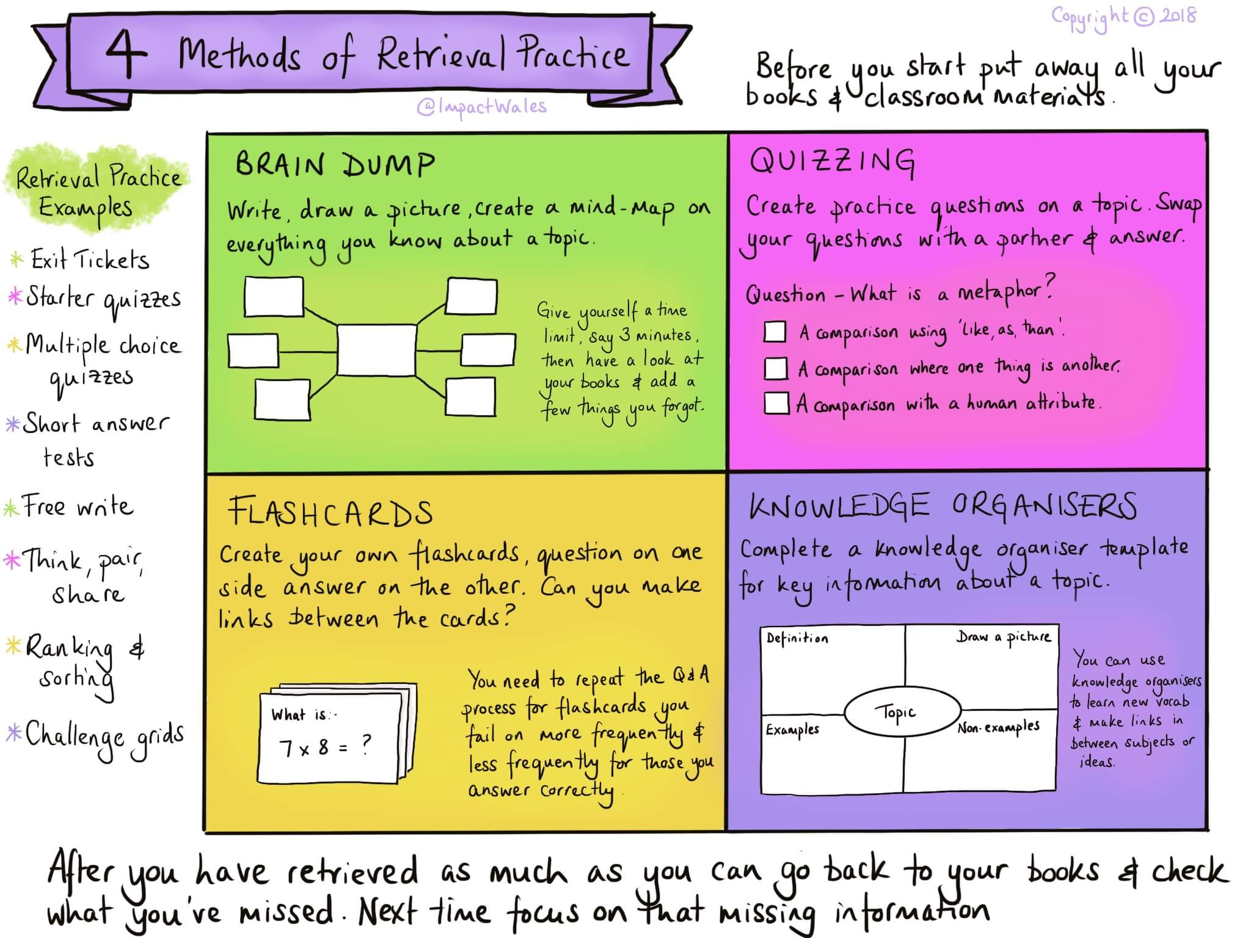 Copyright © 2018
4 Methods of Retrieval Practice
@ImpactWales
Before you start put away all your
books & classroom materials.
Retrieval Practice
Examples
* Exit Tickets
* Starter quizzes
* Multiple choice
quizzes
* Short answer
tests
* Free write
* Think, pair,
share
* Ranking &
sorting
* Challenge grids
BRAIN DUMP
Write, draw a picture, create a mind-map on
everything you know about a topic.
Give yourself a time
limit, say 3 minutes,
then have a look at
your books & add a
few things you forgot.
QUIZZING
Create practice questions on a topic. Swap
your questions with a partner & answer.
Question - What is a metaphor?
A comparison using 'like, as, than'.
A comparison where one thing is another.
A comparison with a human attribute.
FLASHCARDS
Create your own flashcards, question on one
side answer on the other. Can you make
links between the cards?
What is:-
7 x 8 = ?
You need to repeat the Q&A
process for flashcards you
fail on more frequently &
less frequently for those you
answer correctly.
KNOWLEDGE ORGANISERS
Complete a knowledge organiser template
for key information about a topic.
Definition
Draw a picture
Topic
Examples
Non-examples
You can use
knowledge organisers
to learn new vocab
& make links in
between subjects or
ideas.
After you have retrieved as much as you can go back to your books & check
what you've missed. Next time focus on that missing information